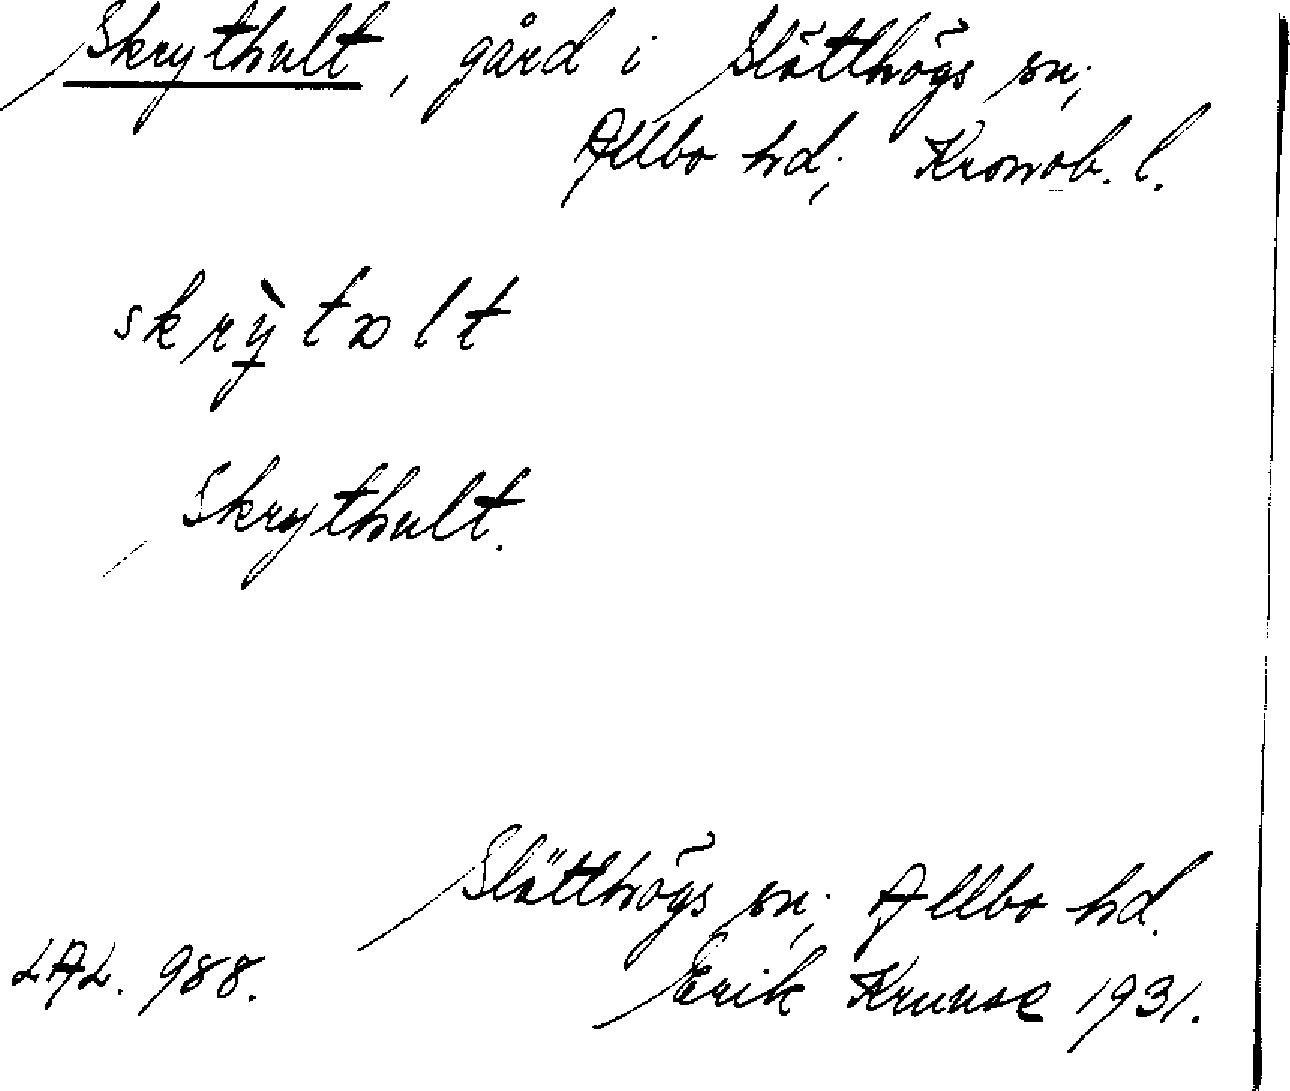 Skrythult, gård i Slätthögs sn;
Allbo hd; Kronob. l.
skrỳ̠tɷlt
Skrythult.
Slätthögs sn; Allbo hd.
LAL. 988. Erik Kruuse 1931.